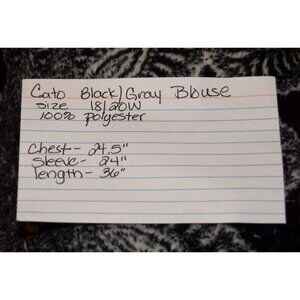 Cato Black/Gray Blouse
size 18/20W
100% polyester
Chest- 24.5"
Sleeve- 24"
length- 36"